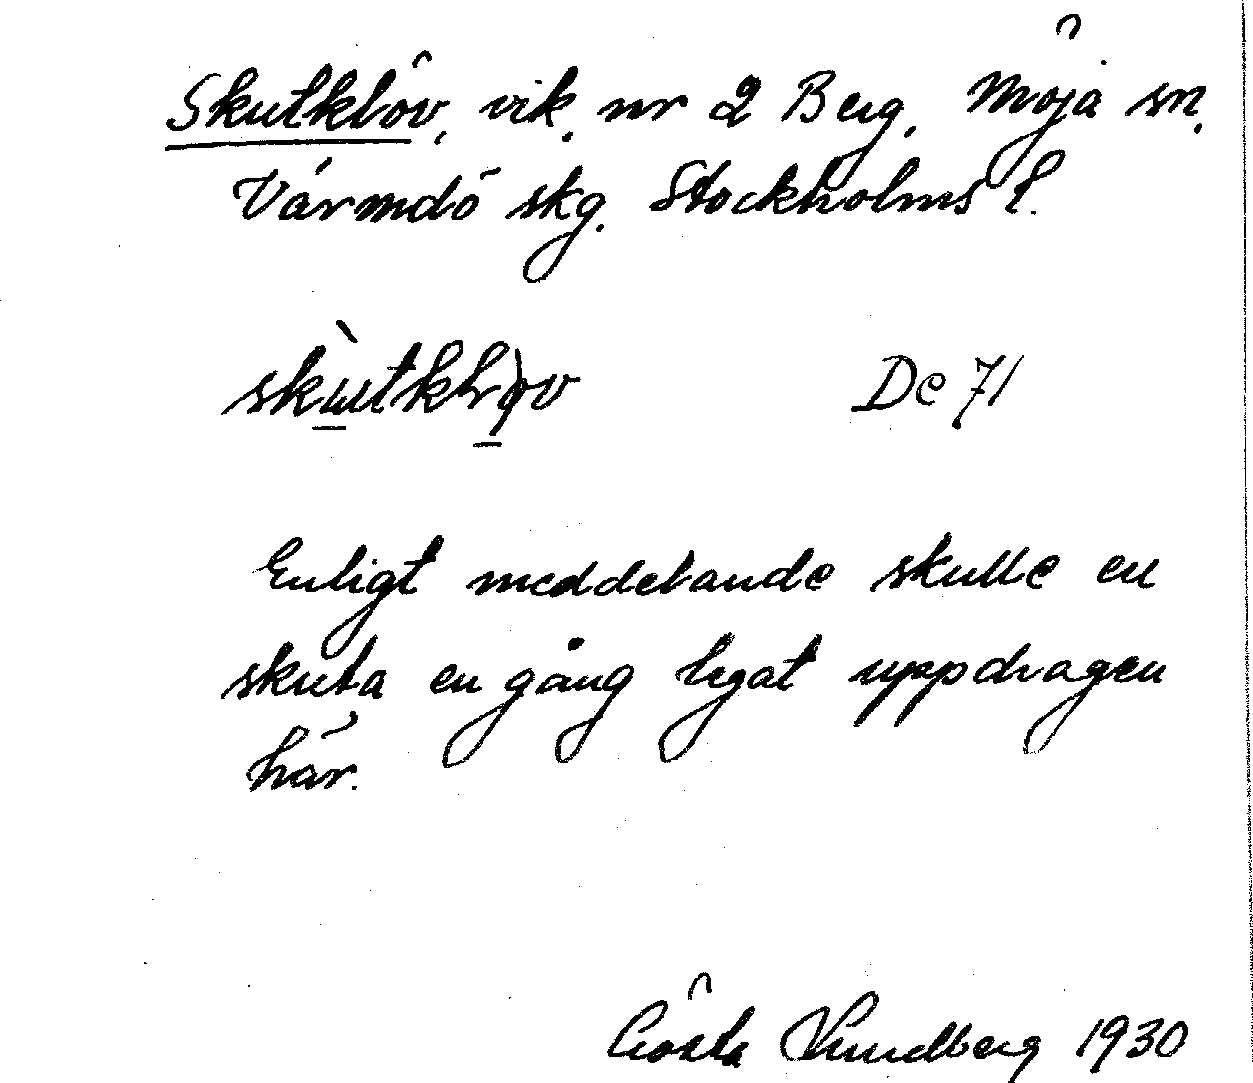 Skutklöv, vik. nr 2 Berg. Möja sn.
Värmdö skg. Stockholms l.
De 71
Enligt meddelande skulle en
skuta en gång legat uppdragen
här.
Gösta Lundberg 1930